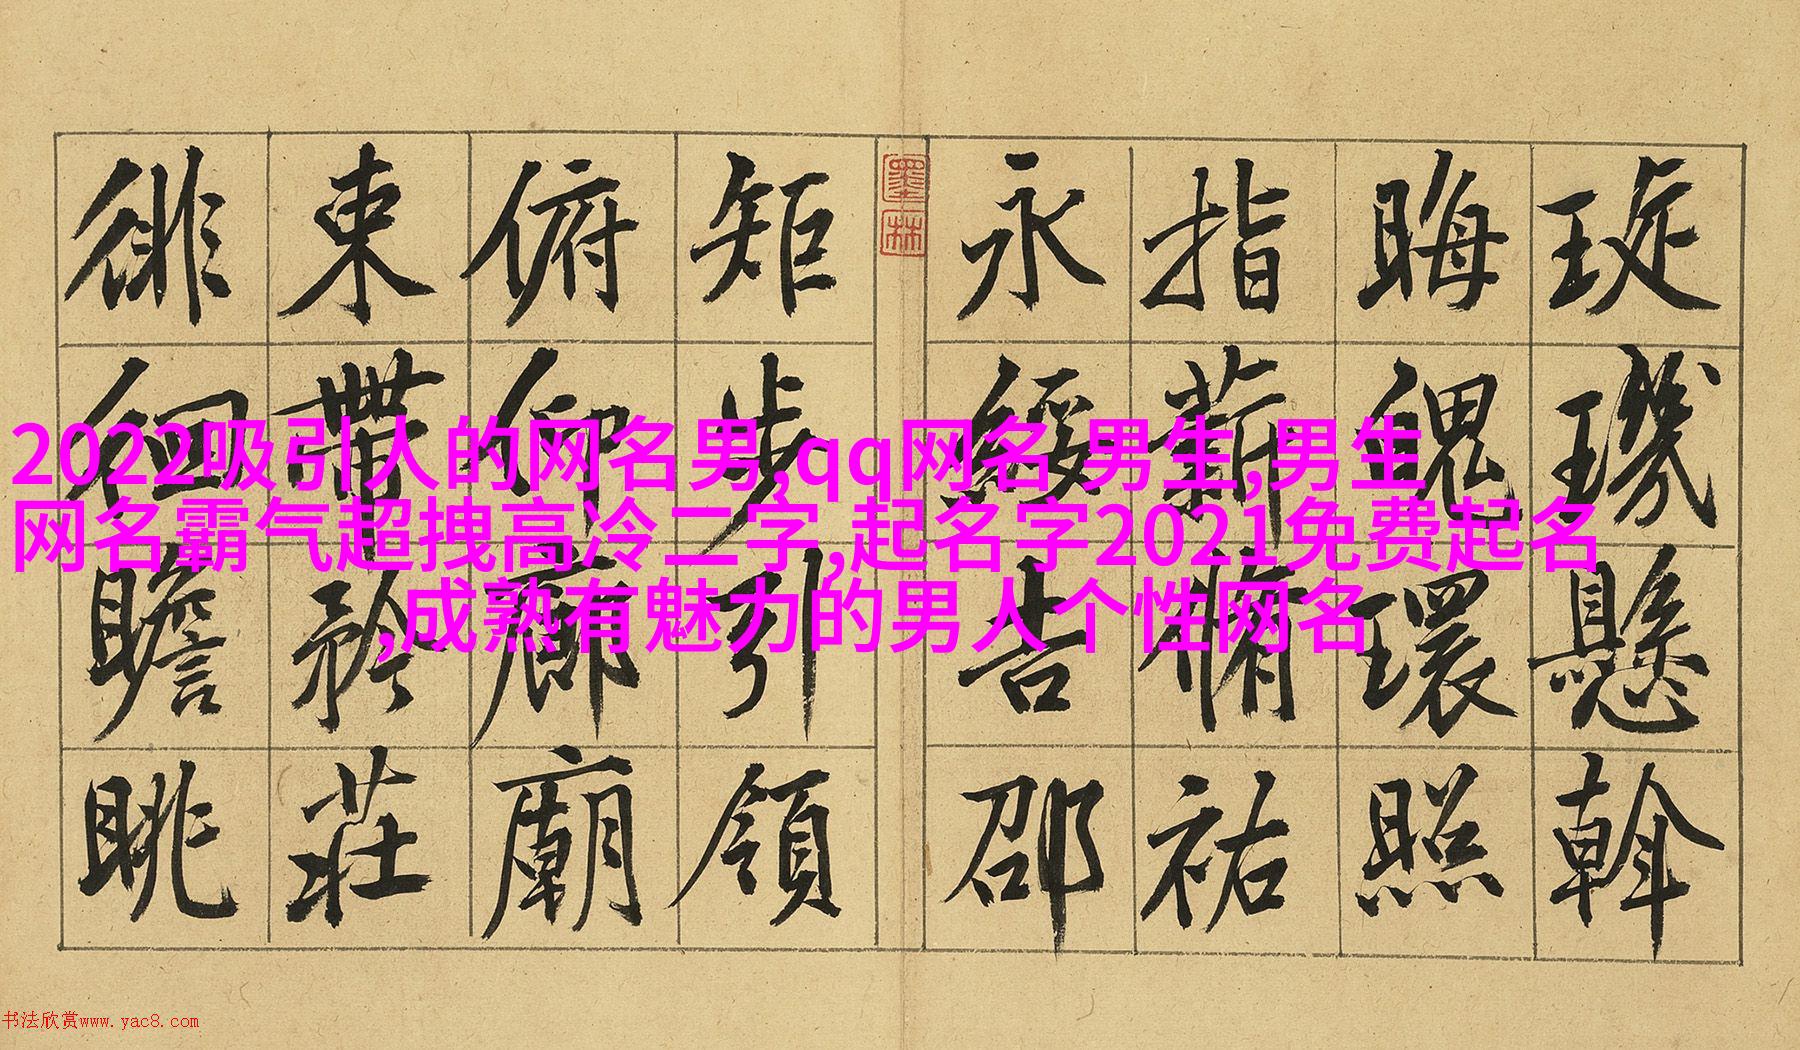 璇璣懸斡
晦魄環照
指薪脩祐
永綏吉邵
墨林
矩步引領
俯仰廊廟
束帶矜莊
徘徊瞻眺
2022吸引人的网名男,qq网名 男生,男生
网名霸气超拽高冷二字,起名字2021免费起名
,成熟有魅力的男人个性网名
书法欣赏www.yac8.com